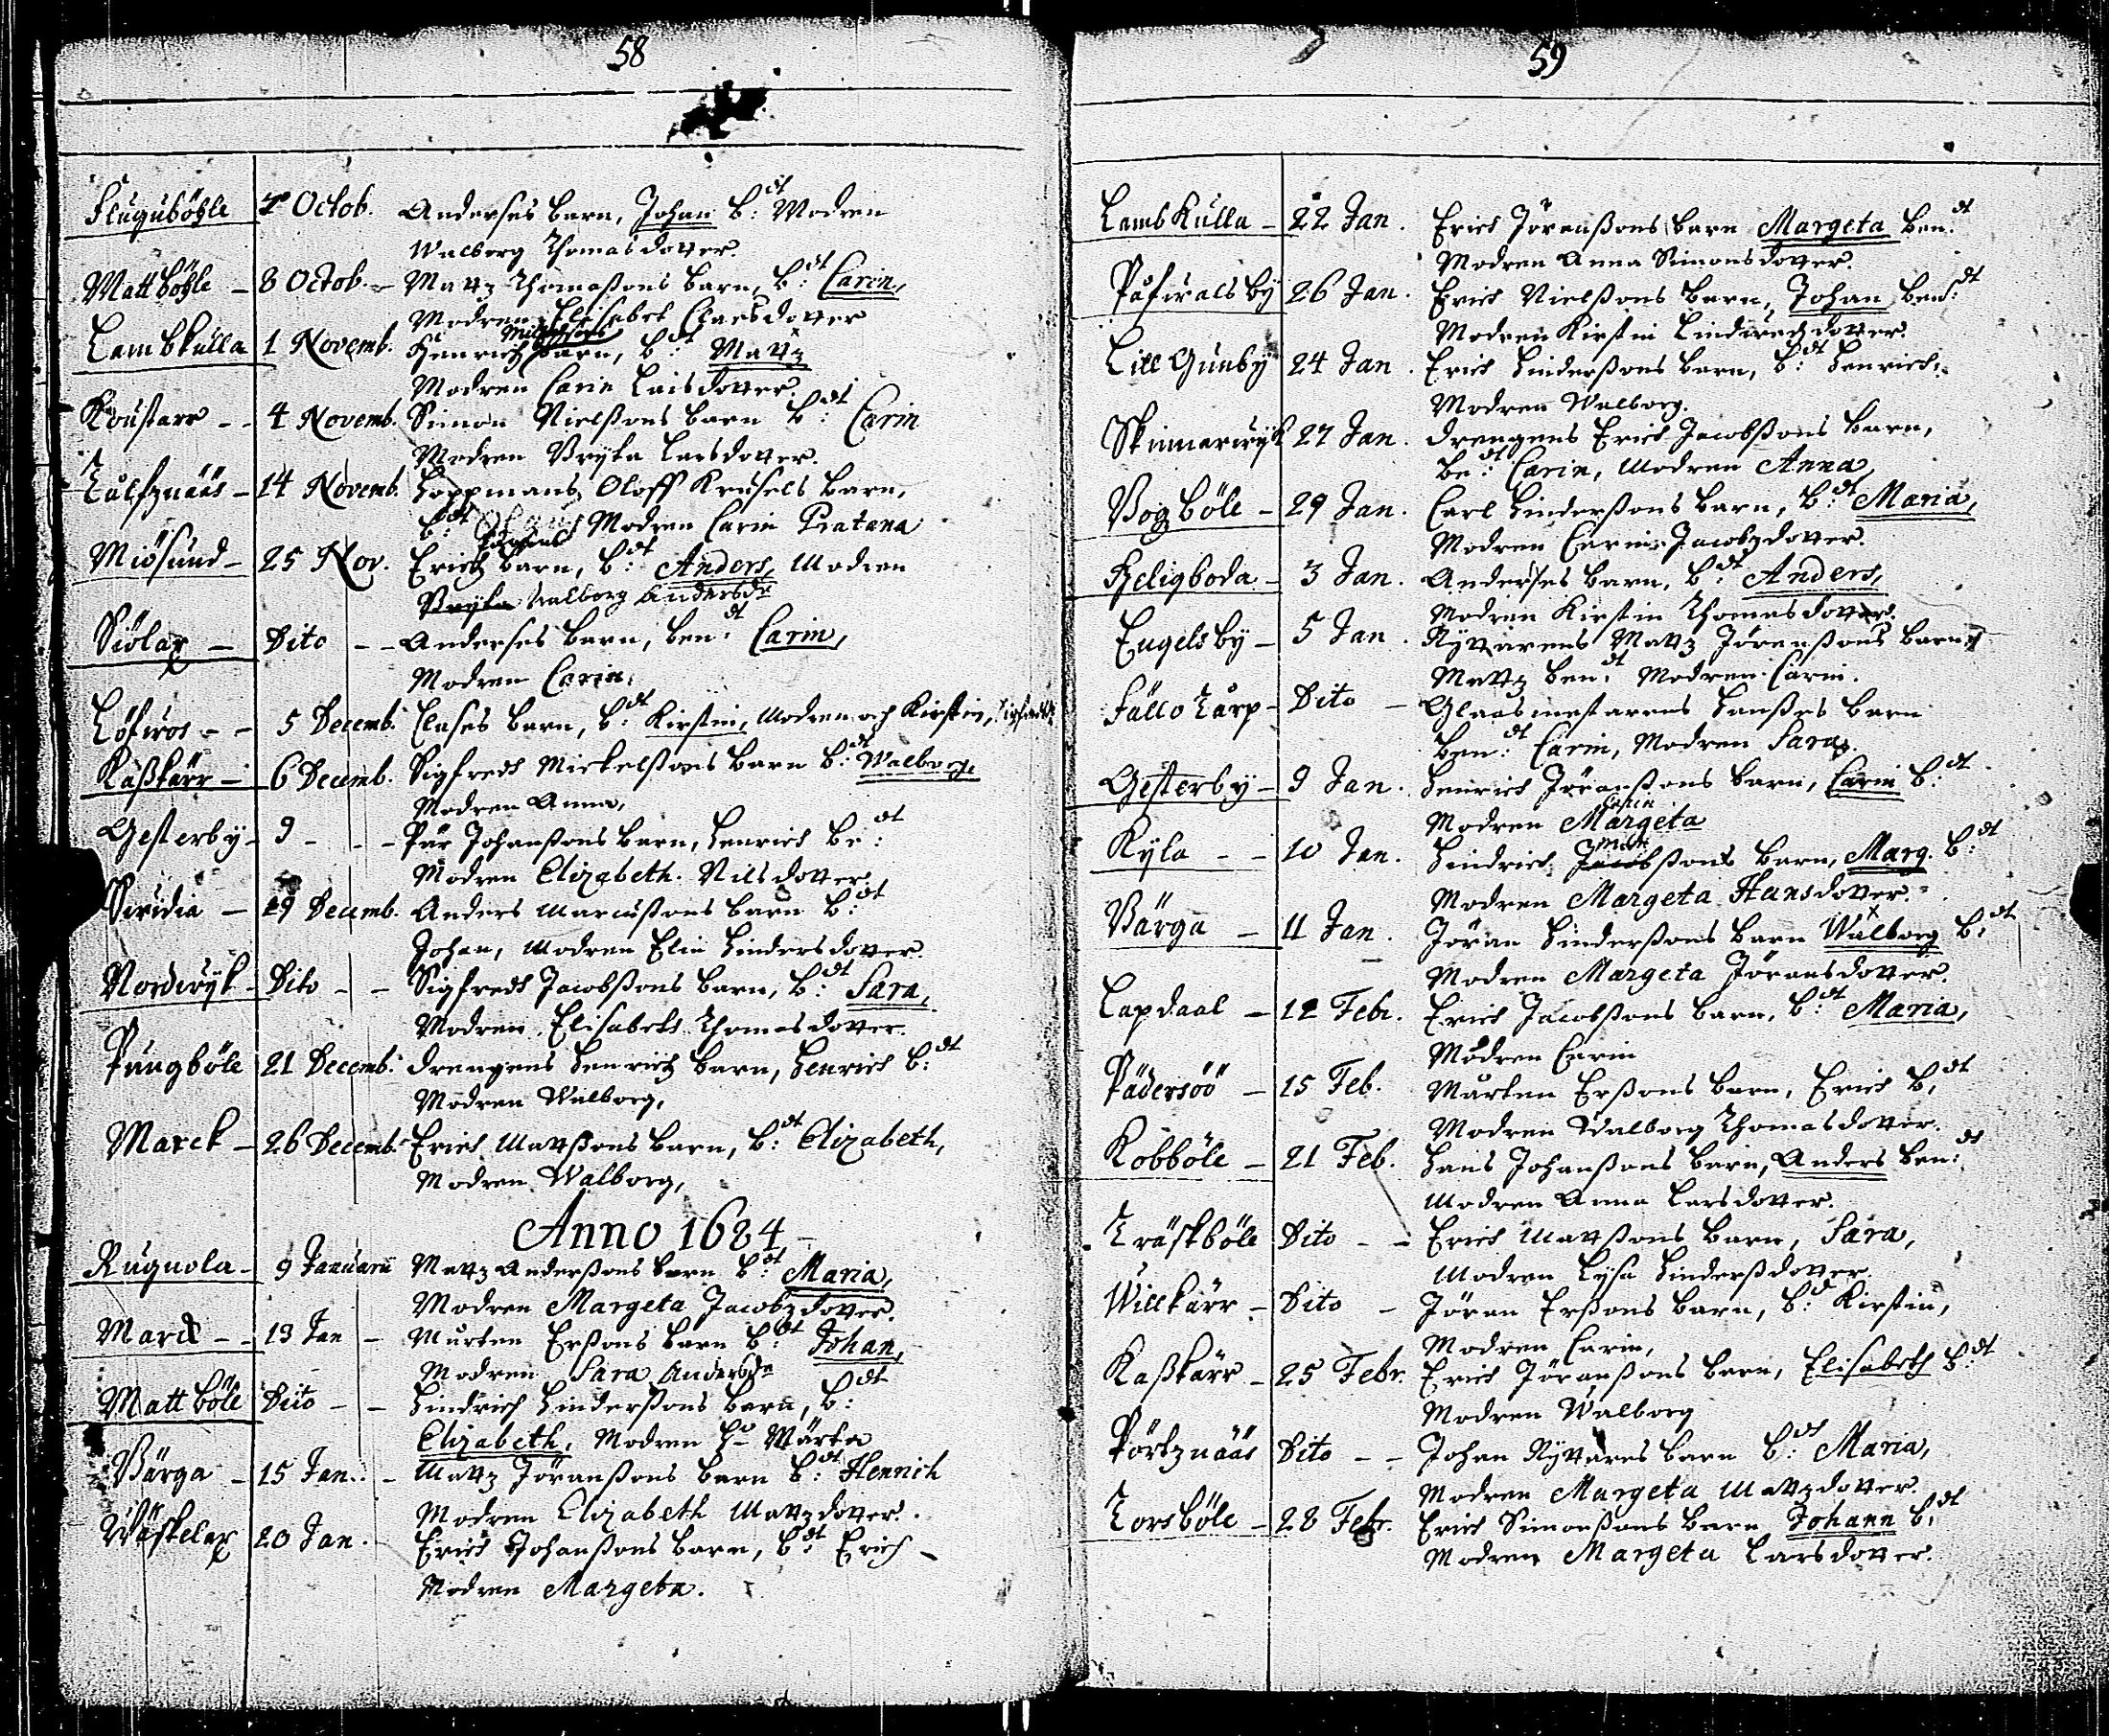 58
Fluguböhle 7 Octob. Anderses barn, Johan b:dt Modren
Walborg Thomasdotter.
Mattböhle - 8 Octob. - Mattz Thomaßons barn, b:dt Carin,
Modren Elisabet Claesdotter
Lambkulla 1 Novemb. Henrich Michelsons barn, b:dt Mattz
Modren Carin Larsdotter.
4 Novemb. Simon Nielßons barn b:dt Carin
Modren Bryta Larsdotter.
14 Novemb. Oloff Krusels barn,
b:dt Modren Carin Pratana
Miösund - 25 Nov. Erichz barn, b:dt Anders, Modren
Bryta Walborg Andersdr
Siölax - Dito - - Anderses barn, ben:dt Carin,
Modren Carin.
Löfwos - - 5 Decemb. Clases barn, b:dt Kirstin, Modren och Kirstin,
Kaßkärr - 6 Decemb. Sigfredh Mickelßons barn b:dt Walborg,
Modren Anna,
Gesterby - 9 - - - Pär Johanßons barn, Henrich be:dt
Modren Elizabeth Nilsdotter,
19 Decemb. Anders Marcußons barn b:dt
Johan, Modren Elin Hindersdotter
Nordwyk - Dito - - Sigfredh Jacobßons barn, b:dt Sara,
Modren Elisabeth Thomasdotter.
Pungböle 21 Decemb. drengens Henrichz barn, Henrich b:dt
Modren Walborg,
Marck - 26 Decemb. Erich Mattßons barn, b:dt Elizabeth,
Modren Walborg,
Anno 1684
Rugnola - 9 Januarii Mattz Anderßons barn b:dt Maria,
Modren Margeta Jacobzdotter.
Marck - - 13 Jan - Murten Erßons barn b:dt Johan,
Modren Sara Andersdr
Mattböle Dito - - Hindrich Hinderßons barn, b:dt
Elizabeth, Modren Hu Märta
Bärga - 15 Jan. - Mattz Jöranßons barn b:dt Henrich
Modren Elizabeth Mattzdotter.
Wäskelax 20 Jan. Erich Johanßons barn, b:dt Erich -
Modren Margeta.
59
Lambkulla - 22 Jan. Erich Jöranßons barn Margeta ben:dt
Modren Anna Simonsdotter.
Påfwalsby 26 Jan. Erich Nielßons barn, Johan ben:dt
Modren Kirstin Lindwedzdotter.
Lill Gunby 24 Jan. Erich Hinderßons barn, b:dt Henrich,
Modren Walborg.
Skinnarwyk 27 Jan. drengens Erich Jacobßons barn,
be:dt Carin, Modren Anna,
Bogböle - 29 Jan. Carl Hinderßons barn, b:dt Maria,
Modren Carin Jacobzdotter.
Heligboda - 3 Jan. Anderses barn, b:dt Anders,
Modren Kirstin Thomasdotter.
Engelsby - 5 Jan. Ryttarens Mattz Jöranßons barn
Mattz ben:dt Modren Carin.
Fällotärp - Dito - Glaasmestarens Hanßes barn
ben:dt Carin, Modren Sara.
Gesterby - 9 Jan. Henrich Jöranßons barn, Carin b:dt
Modren Margeta Carin
Kyla - - 10 Jan. Hindrich Jacobßons barn, Marg. b:dt
Modren Margeta Hansdotter.
Bärga - 11 Jan. Jöran Hinderßons barn Walborg b:dt
Modren Margeta Jöransdotter.
Lapdaal - 12 Febr. Erich Jacobßons barn, b:dt Maria,
Modren Carin
Pädersöö - 15 Feb. Murten Erßons barn, Erich b:dt
Modren Walborg Thomasdotter.
Kobböle - 21 Feb. Hans Johanßons barn, Anders ben:dt
Modren Anna Larsdotter.
Träskböle Dito - - Erich Mattßons barn, Sara,
Modren Lysa Hinderßdotter.
Willkärr - Dito - Jöran Erßons barn, b:d Kirstin,
Modren Carin,
Kaßkärr - 25 Febr. Erich Jöranßons barn, Elisabeth b:dt
Modren Walborg
Pörtznääs Dito - - Johan Ryttares barn b:dt Maria,
Modren Margeta Mattzdotter
Torsböle - 28 Febr. Erich Simonßons barn Johann b:dt
Modren Margeta Larsdotter.